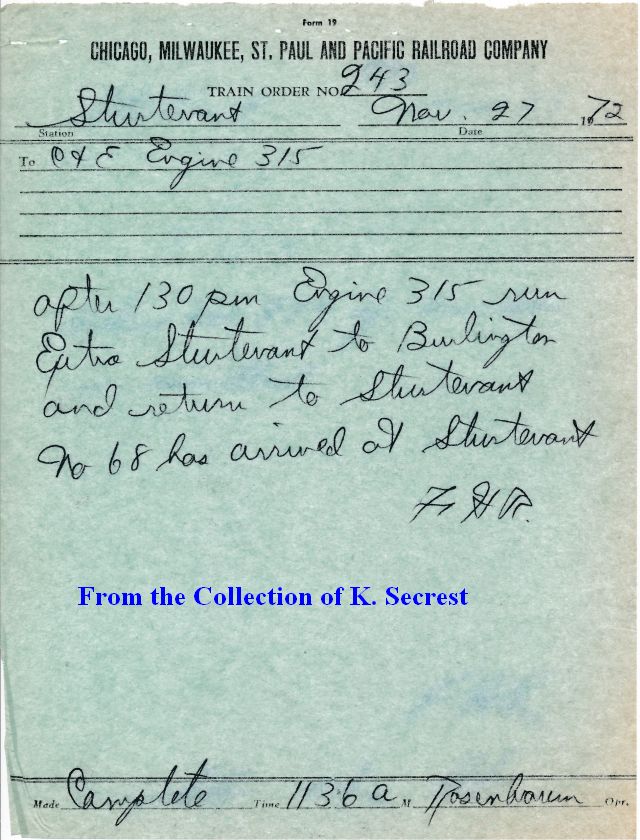 Form 19
CHICAGO, MILWAUKEE, ST. PAUL AND PACIFIC RAILROAD COMPANY
TRAIN ORDER NO. 243
Sturtevant Nov. 27 1972
Station Date
To C & E Engine 315
after 130 pm Engine 315 run
Extra Sturtevant to Burlington
and return to Sturtevant
No 68 has arrived at Sturtevant
F H R.
From the Collection of K. Secrest
Made Complete Time 1136 a M Rosenbaum Opr.